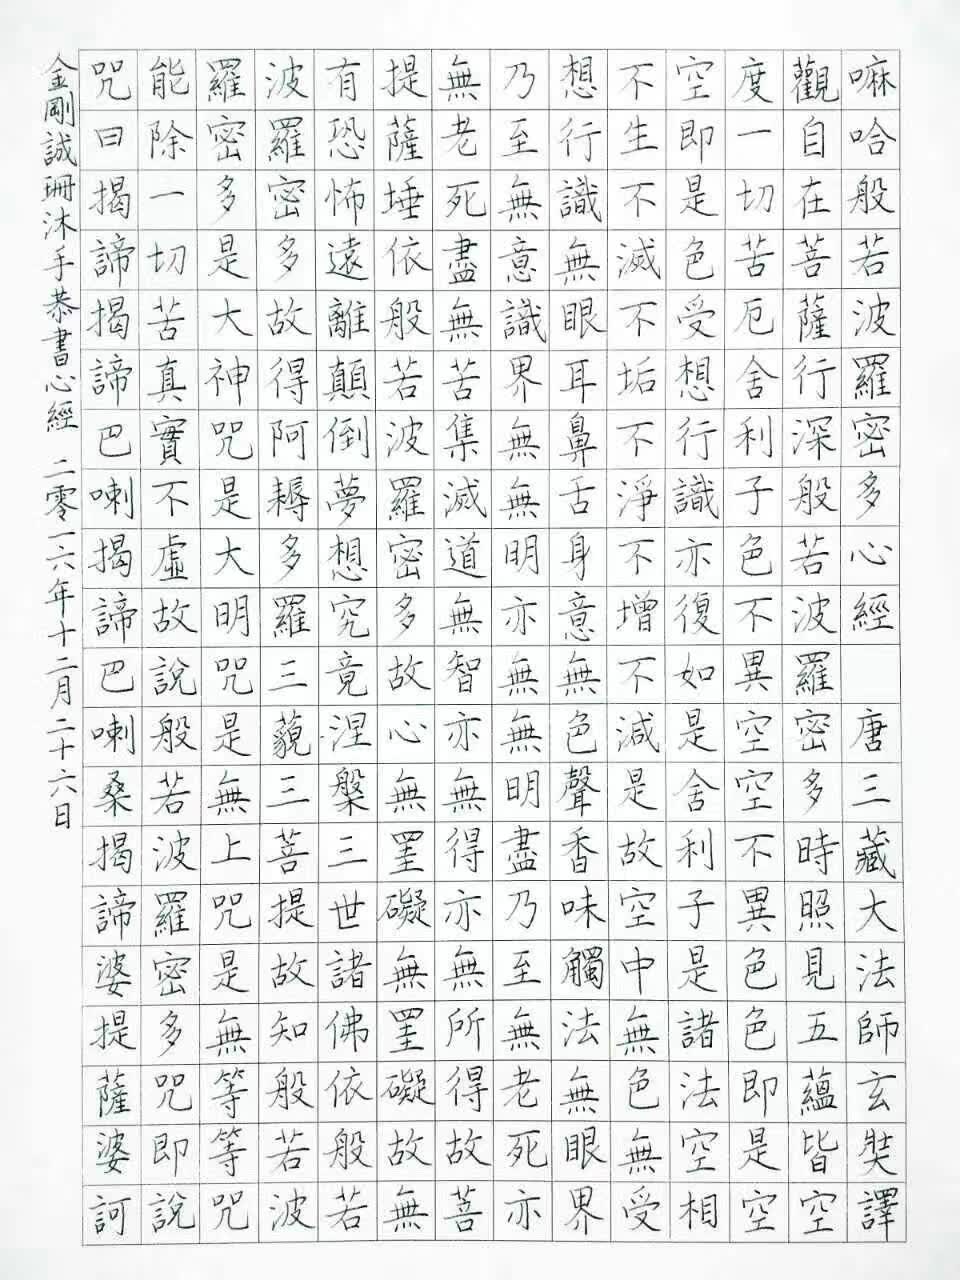 嘛哈般若波羅密多心經 唐三藏大法師玄奘譯
觀自在菩薩行深般若波羅密多時照見五蘊皆空
度一切苦厄舍利子色不異空空不異色色即是空
空即是色受想行識亦復如是舍利子是諸法空相
不生不滅不垢不淨不增不減是故空中無色無受
想行識無眼耳鼻舌身意無色聲香味觸法無眼界
乃至無意識界無無明亦無無明盡乃至無老死亦
無老死盡無苦集滅道無智亦無得亦無所得故菩
提薩埵依般若波羅密多故心無罣礙無罣礙故無
有恐怖遠離顛倒夢想究竟涅槃三世諸佛依般若
波羅密多故得阿耨多羅三藐三菩提故知般若波
羅密多是大神咒是大明咒是無上咒是無等等咒
能除一切苦真實不虛故說般若波羅密多咒即說
咒曰揭諦揭諦巴喇揭諦巴喇桑揭諦婆提薩婆訶
金剛誠珊沐手恭書心經 二零一六年十二月二十六日